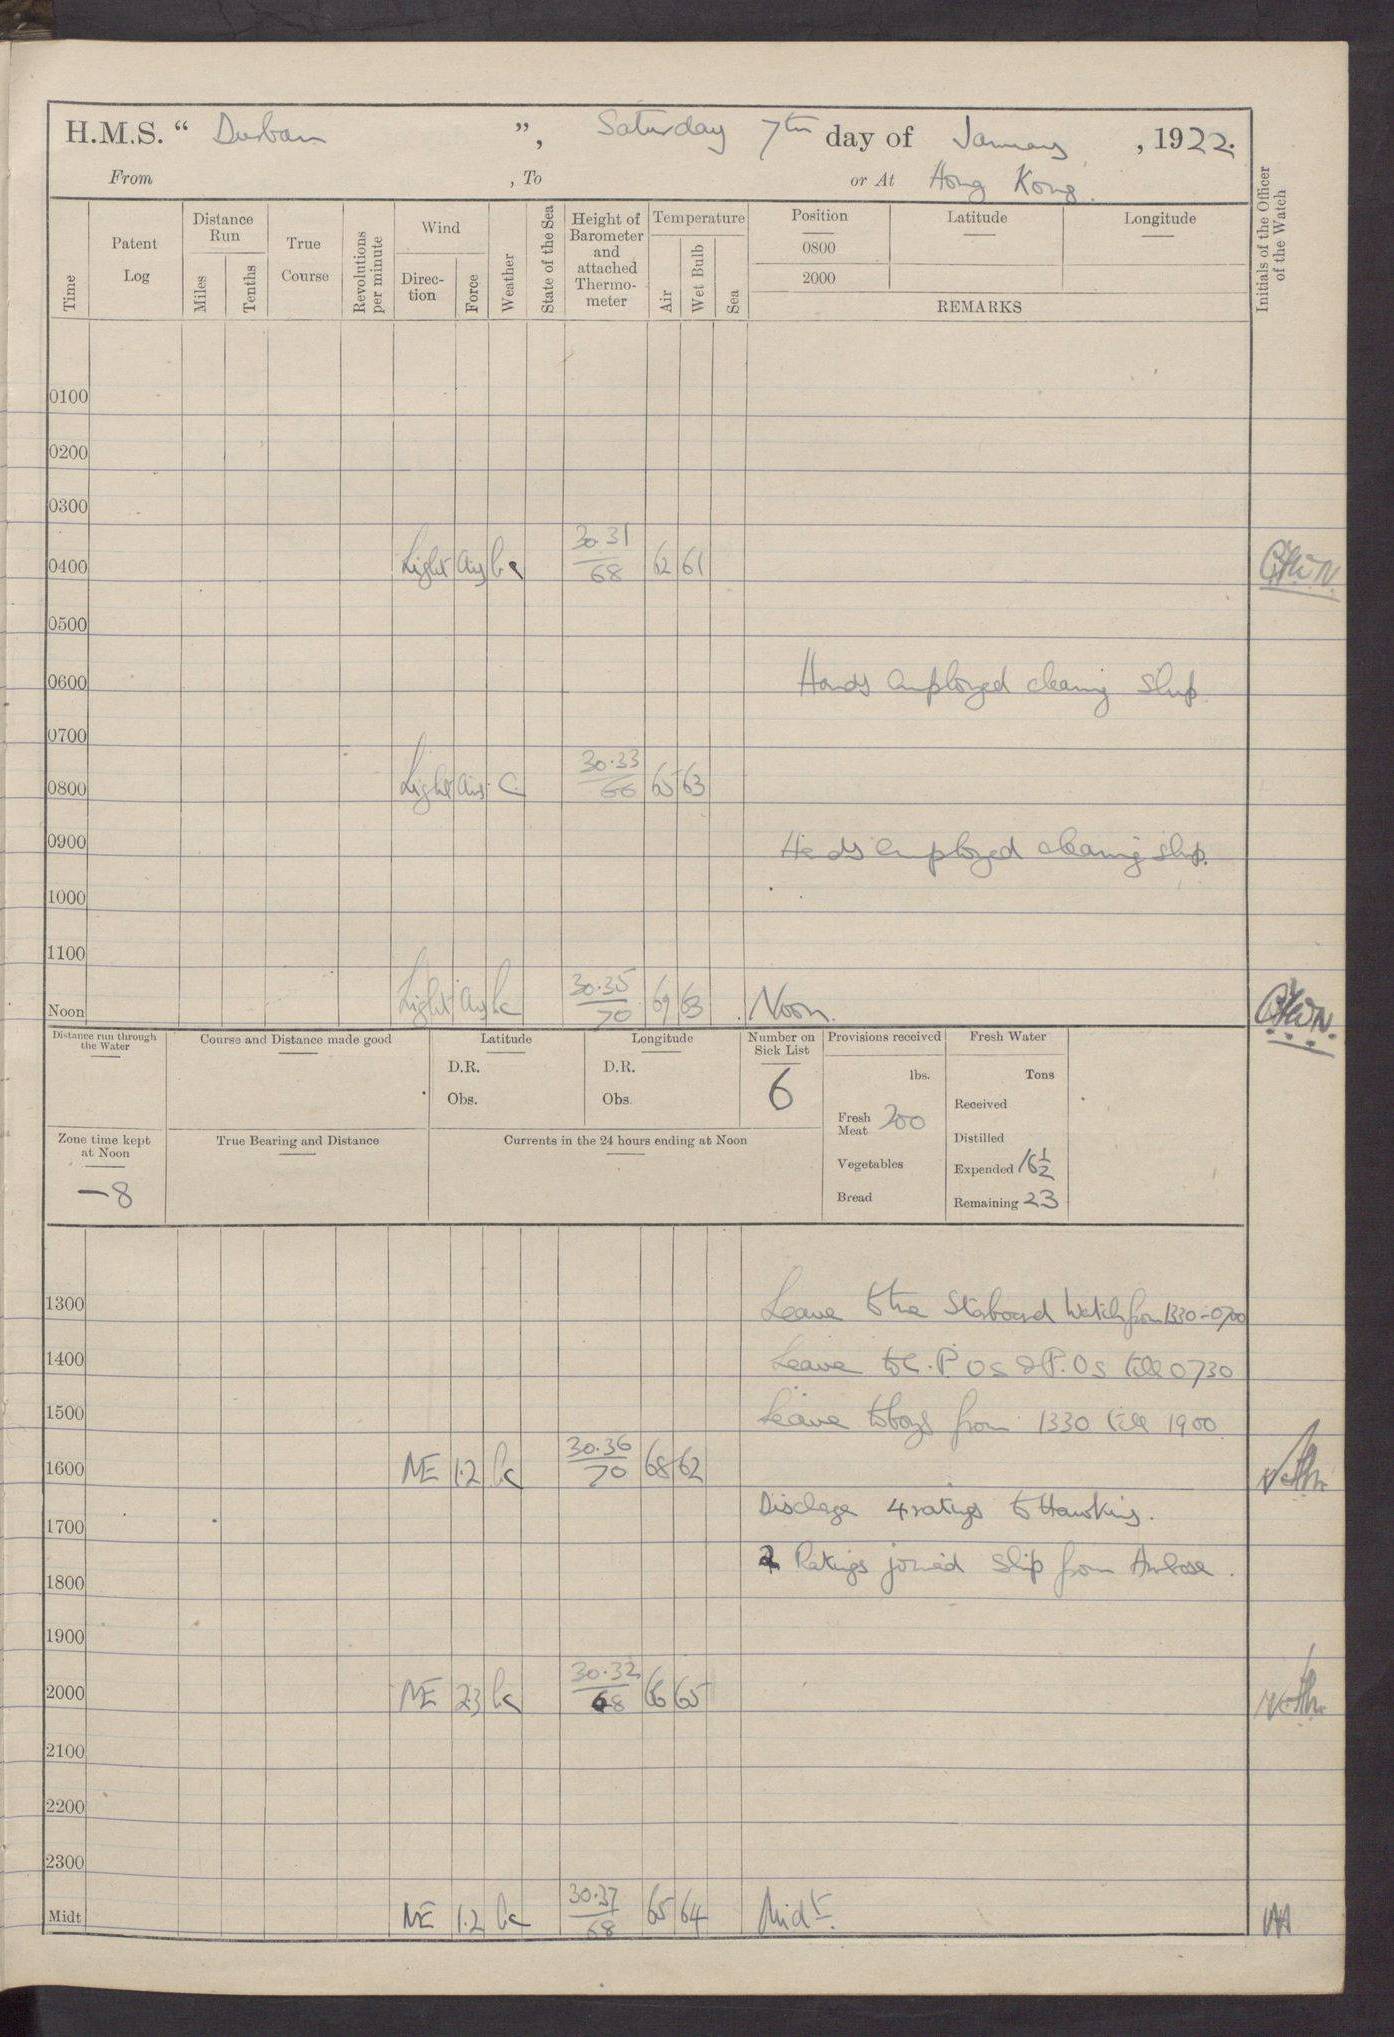 H.M.S. “ Durban ”, Saturday 7th day of January , 1922.
From , To or At Hong Kong.
Time
Patent Log
Distance Run
Miles
Tenths
True Course
Revolutions per minute
Wind
Direc-tion
Force
Weather
State of the Sea
Height of Barometer and attached Thermo-meter
Temperature
Air
Wet Bulb
Sea
Position Latitude Longitude
0800
2000
REMARKS
Initials of the Officer of the Watch
0100
0200
0300
0400 Light airs bc 30.31 68 62 61
0500
0600 Hands employed cleaning ship
0700
0800 Light airs c 30.33 66 65 63
0900 Hands employed cleaning ship.
1000
1100
Noon Light airs bc 30.35 70 69 63 Noon.
Distance run through the Water
Course and Distance made good
Latitude
D.R.
Obs.
Longitude
D.R.
Obs.
Number on Sick List
6
Provisions received
lbs.
Fresh Meat 200
Vegetables
Bread
Fresh Water
Tons
Received
Distilled
Expended 16½
Remaining 23
Zone time kept at Noon
–8
True Bearing and Distance
Currents in the 24 hours ending at Noon
1300 Leave to the Starboard Watch from 1330–0700
1400 Leave to C.P.Os & P.Os till 0730
1500 Leave to boys from 1330 till 1900
1600 NE 1.2 bc 30.36 70 68 62
Discharge 4 ratings to Hawkins.
1700
2 Ratings joined ship from Ambrose.
1800
1900
2000 NE 2.3 bc 30.32 68 66 65
2100
2200
2300
Midt NE 1.2 bc 30.37 68 65 64 Midt.